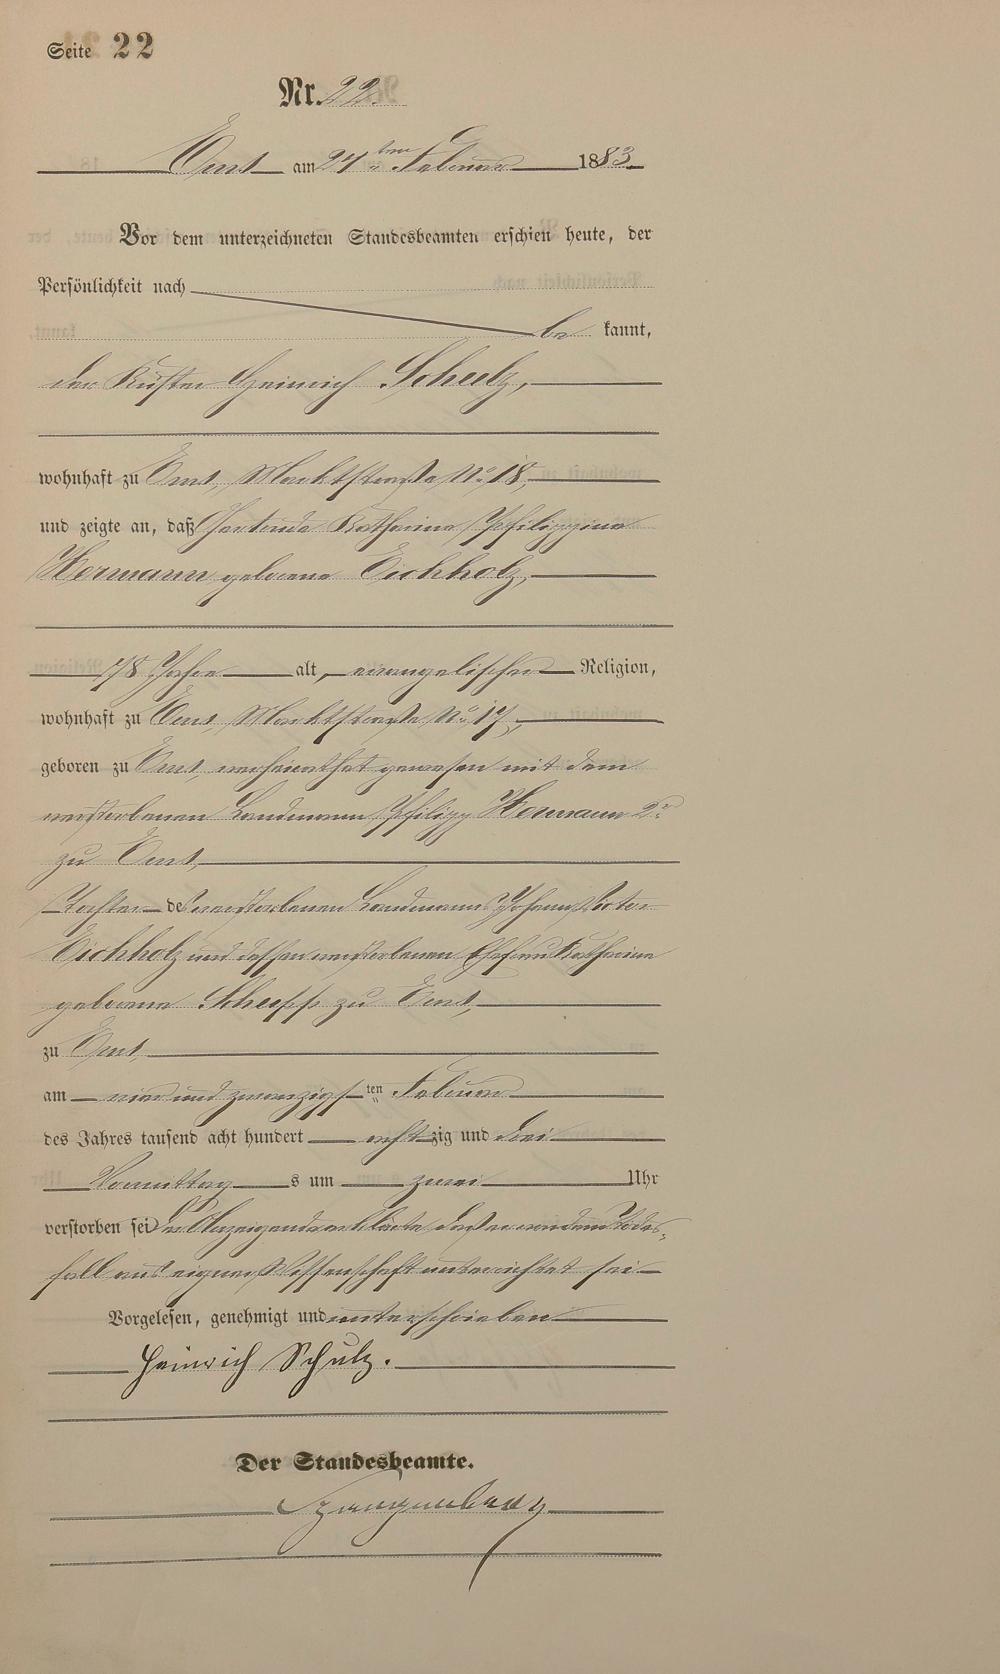 Seite 22
Nr. 22.
Ems am 24ten Februar 1883.
Vor dem unterzeichneten Standesbeamten erschien heute, der
Persönlichkeit nach
be kannt,
der Küster Heinrich Schulz,
wohnhaft zu Ems, Marktstraße No 18,
und zeigte an, daß Gertrude Katharina Philippine
Hermann geborene Eichholz,
78 Jahre alt, evangelischer Religion,
wohnhaft zu Ems, Marktstraße No 17,
geboren zu Ems, verheirathet gewesen mit dem
verstorbenen Landmann Philipp Hermann 2r
zu Ems,
Tochter des verstorbenen Landmanns Johann Peter
Eichholz und dessen verstorbenen Ehefrau Katharine
geborene Schupp zu Ems,
zu Ems,
am vier und zwanzigsten Februar
des Jahres tausend acht hundert acht zig und drei
Vormittag s um zwei Uhr
verstorben sei Der Anzeigende erklärte daß er von dem Todes-
fall aus eigner Wissenschaft unterrichtet sei
Vorgelesen, genehmigt und unterschrieben
Heinrich Schulz.
Der Standesbeamte.
Spangenberg